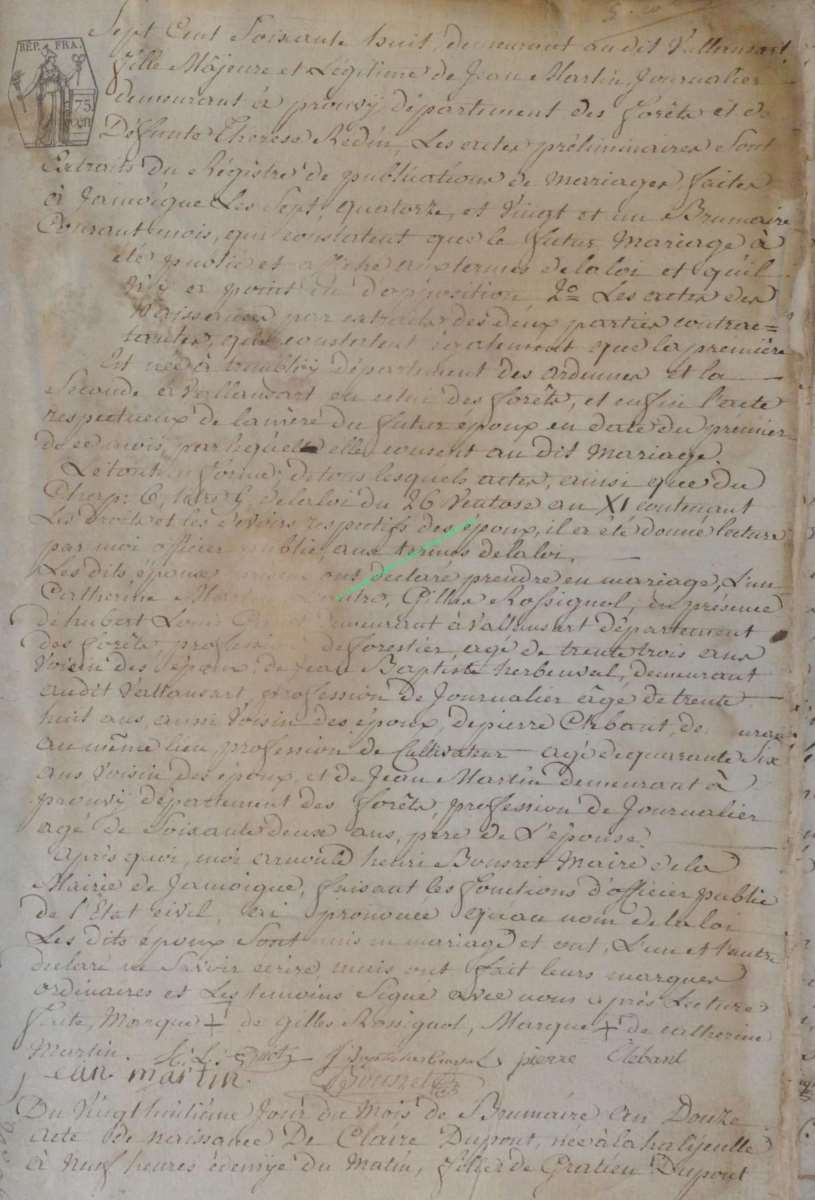 RÉP. FRA.
75
CEN
Sept Cent Soixante huit, demeurant audit Vallansart
fille Majeure et Légitime de Jean Martin, Journalier
demeurant à prouvÿ département des forêts et de
Défunte Therese Rédin, Les actes préliminaires Sont
Extraits du Régistre de publications de mariages, faites
à Jamoigue Les Sept, quatorze, et Vingt et un Brumaire
Courant mois, qui constatent que le futur Mariage à
été publié et affiché aux termes de la loi et qu'il
n'y a point eu d'opposition 2o Les actes des
Naissances par extraits des deux parties contrac=
tantes, qui constatent également que la première
Est née à département des ardennes et la
Seconde à Vallansart en celui des forêts, et enfin l'acte
respectueux de la mere du futur époux en date du premier
de ce mois, par lequel elle consent au dit Mariage.
Le tout en forme, de tous lesquels actes, ainsi que du
Chap: 6, titre de la loi du 26 Ventose an XI contenant
Les Droits et les devoirs respectifs des époux, il a été donné lecture
par moi officier public aux termes de la loi.
Les dits époux ont déclaré prendre en mariage, L'un
Catherine Gilles Rossignol, en présence
de hubert Louis demeurant à Vallansart département
des forêts, profession de forestier, agé de trente trois ans
Voisin des époux, de Jean Baptiste herbeuval, demeurant
audit Vallansart, profession de Journalier âgé de trente
huit ans, aussi Voisin des époux, de pierre Clebant, de
au même lieu profession de Cultivateur agé de quarante Six
ans Voisin des époux, et de Jean Martin demeurant à
prouvÿ département des forêts, profession de Journalier
agé de Soixante deux ans, pere de L'épouse.
Après quoi, moi henri Maire de la
Mairie de Jamoigue, faisant les fonctions d'officier public
de l'État civil, ai prononcé qu'au nom de la loi
Les dits époux Sont unis en mariage et ont, L'un et l'autre
declaré ne Savoir écrire, mais ont fait leurs marques
ordinaires et Les temoins Signé avec nous après Lecture
faite, Marque + de gilles Rossignol, Marque + de catherine
Martin. pierre Clebant
jean martin
Du Vingt huitième Jour du Mois de Brumaire an Douze
acte de naissance De Claire Dupont, née à
à Neuf heures du Matin, fille de Gratien Dupont